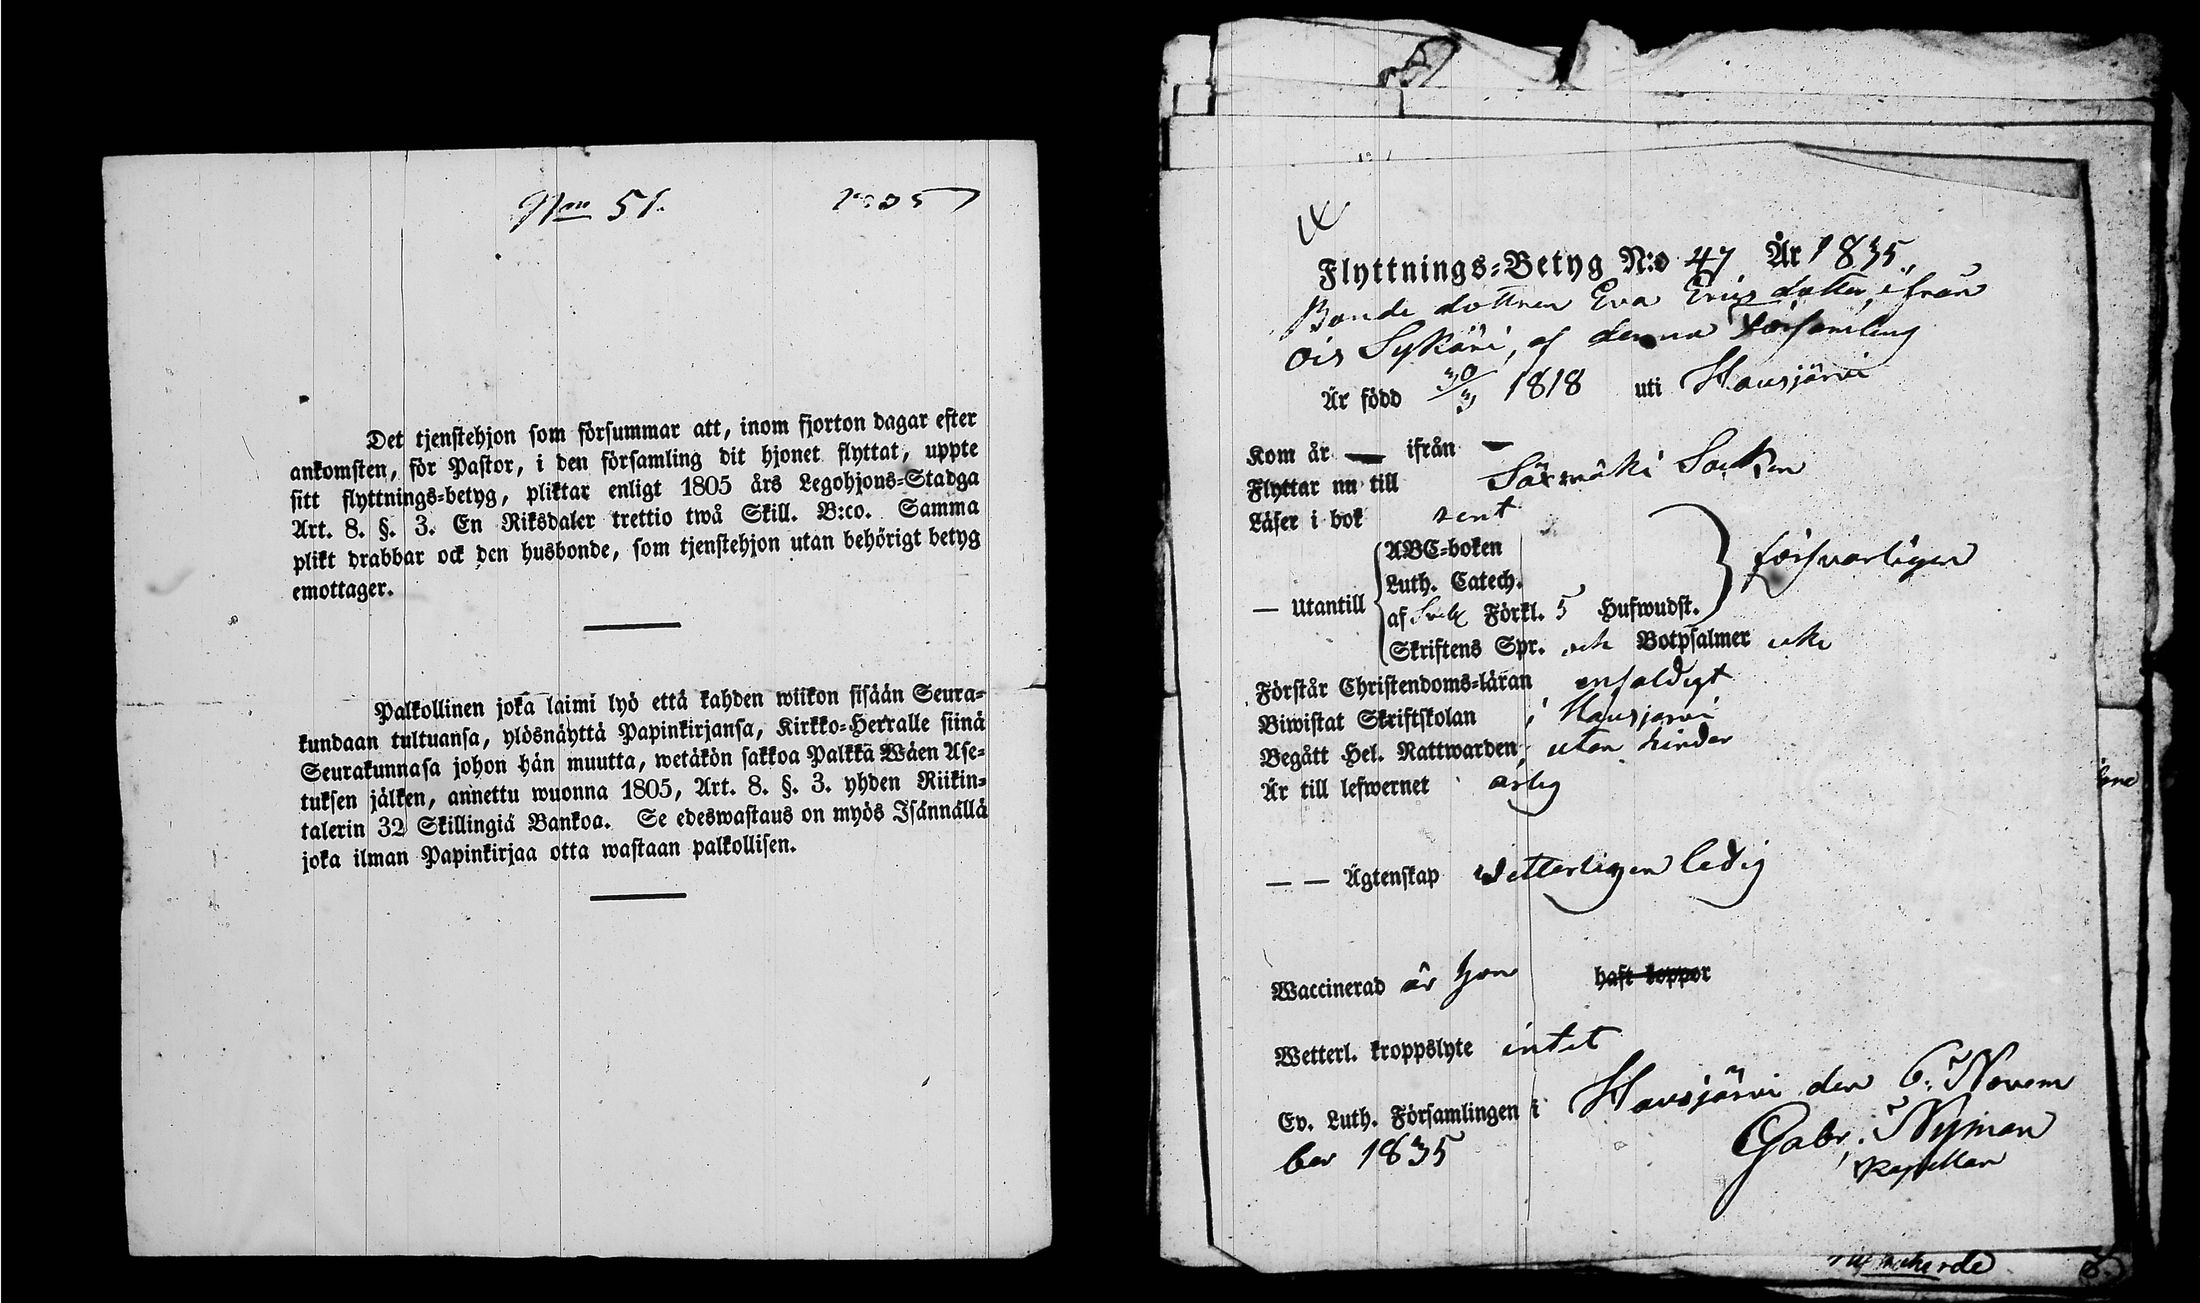 Nro 51. 1835
Det tjenstehjon som försummar att, inom fjorton dagar efter
ankomsten, för Pastor, i den församling dit hjonet flyttat, uppte
sitt flyttnings-betyg, pliktar enligt 1805 års Legohjons-Stadga
Art. 8. §. 3. En Riksdaler trettio twå Skill. B:co. Samma
plikt drabbar ock den husbonde, som tjenstehjon utan behörigt betyg
emottager.
Palkollinen joka laimi lyö että kahden wiikon sisään Seura-
kundaan tultuansa, ylösnäyttä Papinkirjansa, Kirkko-Herralle siinä
Seurakunnasa johon hän muutta, wetäkön sakkoa Palkkä Wäen Ase-
tuksen jälken, annettu wuonna 1805, Art. 8. §. 3. yhden Riikin-
talerin 32 Skillingiä Bankoa. Se edeswastaus on myös Isännällä
joka ilman Papinkirjaa otta wastaan palkollisen.
51
Flyttnings-Betyg N:o 47 År 1835
Bonde dottren Eva Ericsdotter, ifrån
Ois Sykäri, af denna Församling
Är född 30/3 1818 uti Hausjärvi
Kom år — ifrån —
Flyttar nu till Säxmäki Socken
Läser i bok rent
ABC-boken
Luth. Catech.
— Utantill försvarligen
af Sveb. Förkl. 5 Hufwudst.
Skriftens Spr. och Botpsalmer icke
Förstår Christendoms-läran enfaldigt
Biwistat Skriftskolan i Hausjärvi
Begått Hel. Nattwarden, utan hinder
Är till lefwernet ärlig
— — Ägtenskap Vetterligen ledig
Waccinerad är hon haft koppor
Wetterl. kroppslyte intet
Ev. Luth. Församlingen i Hausjärvi den 6. Novem
ber 1835 Gabr. Nyman
Kapellan